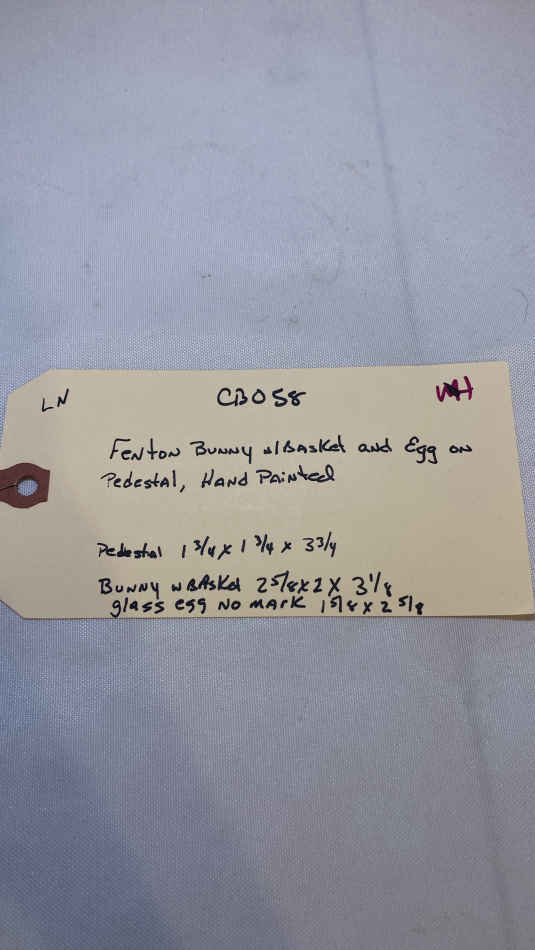 LN
CB058
WH
Fenton Bunny w/Basket and Egg on
Pedestal, Hand Painted
Pedestal 1 3/4 x 1 3/4 x 3 3/4
Bunny w Basket 2 5/8 x 2 x 3 1/8
glass egg no mark 1 5/8 x 2 5/8